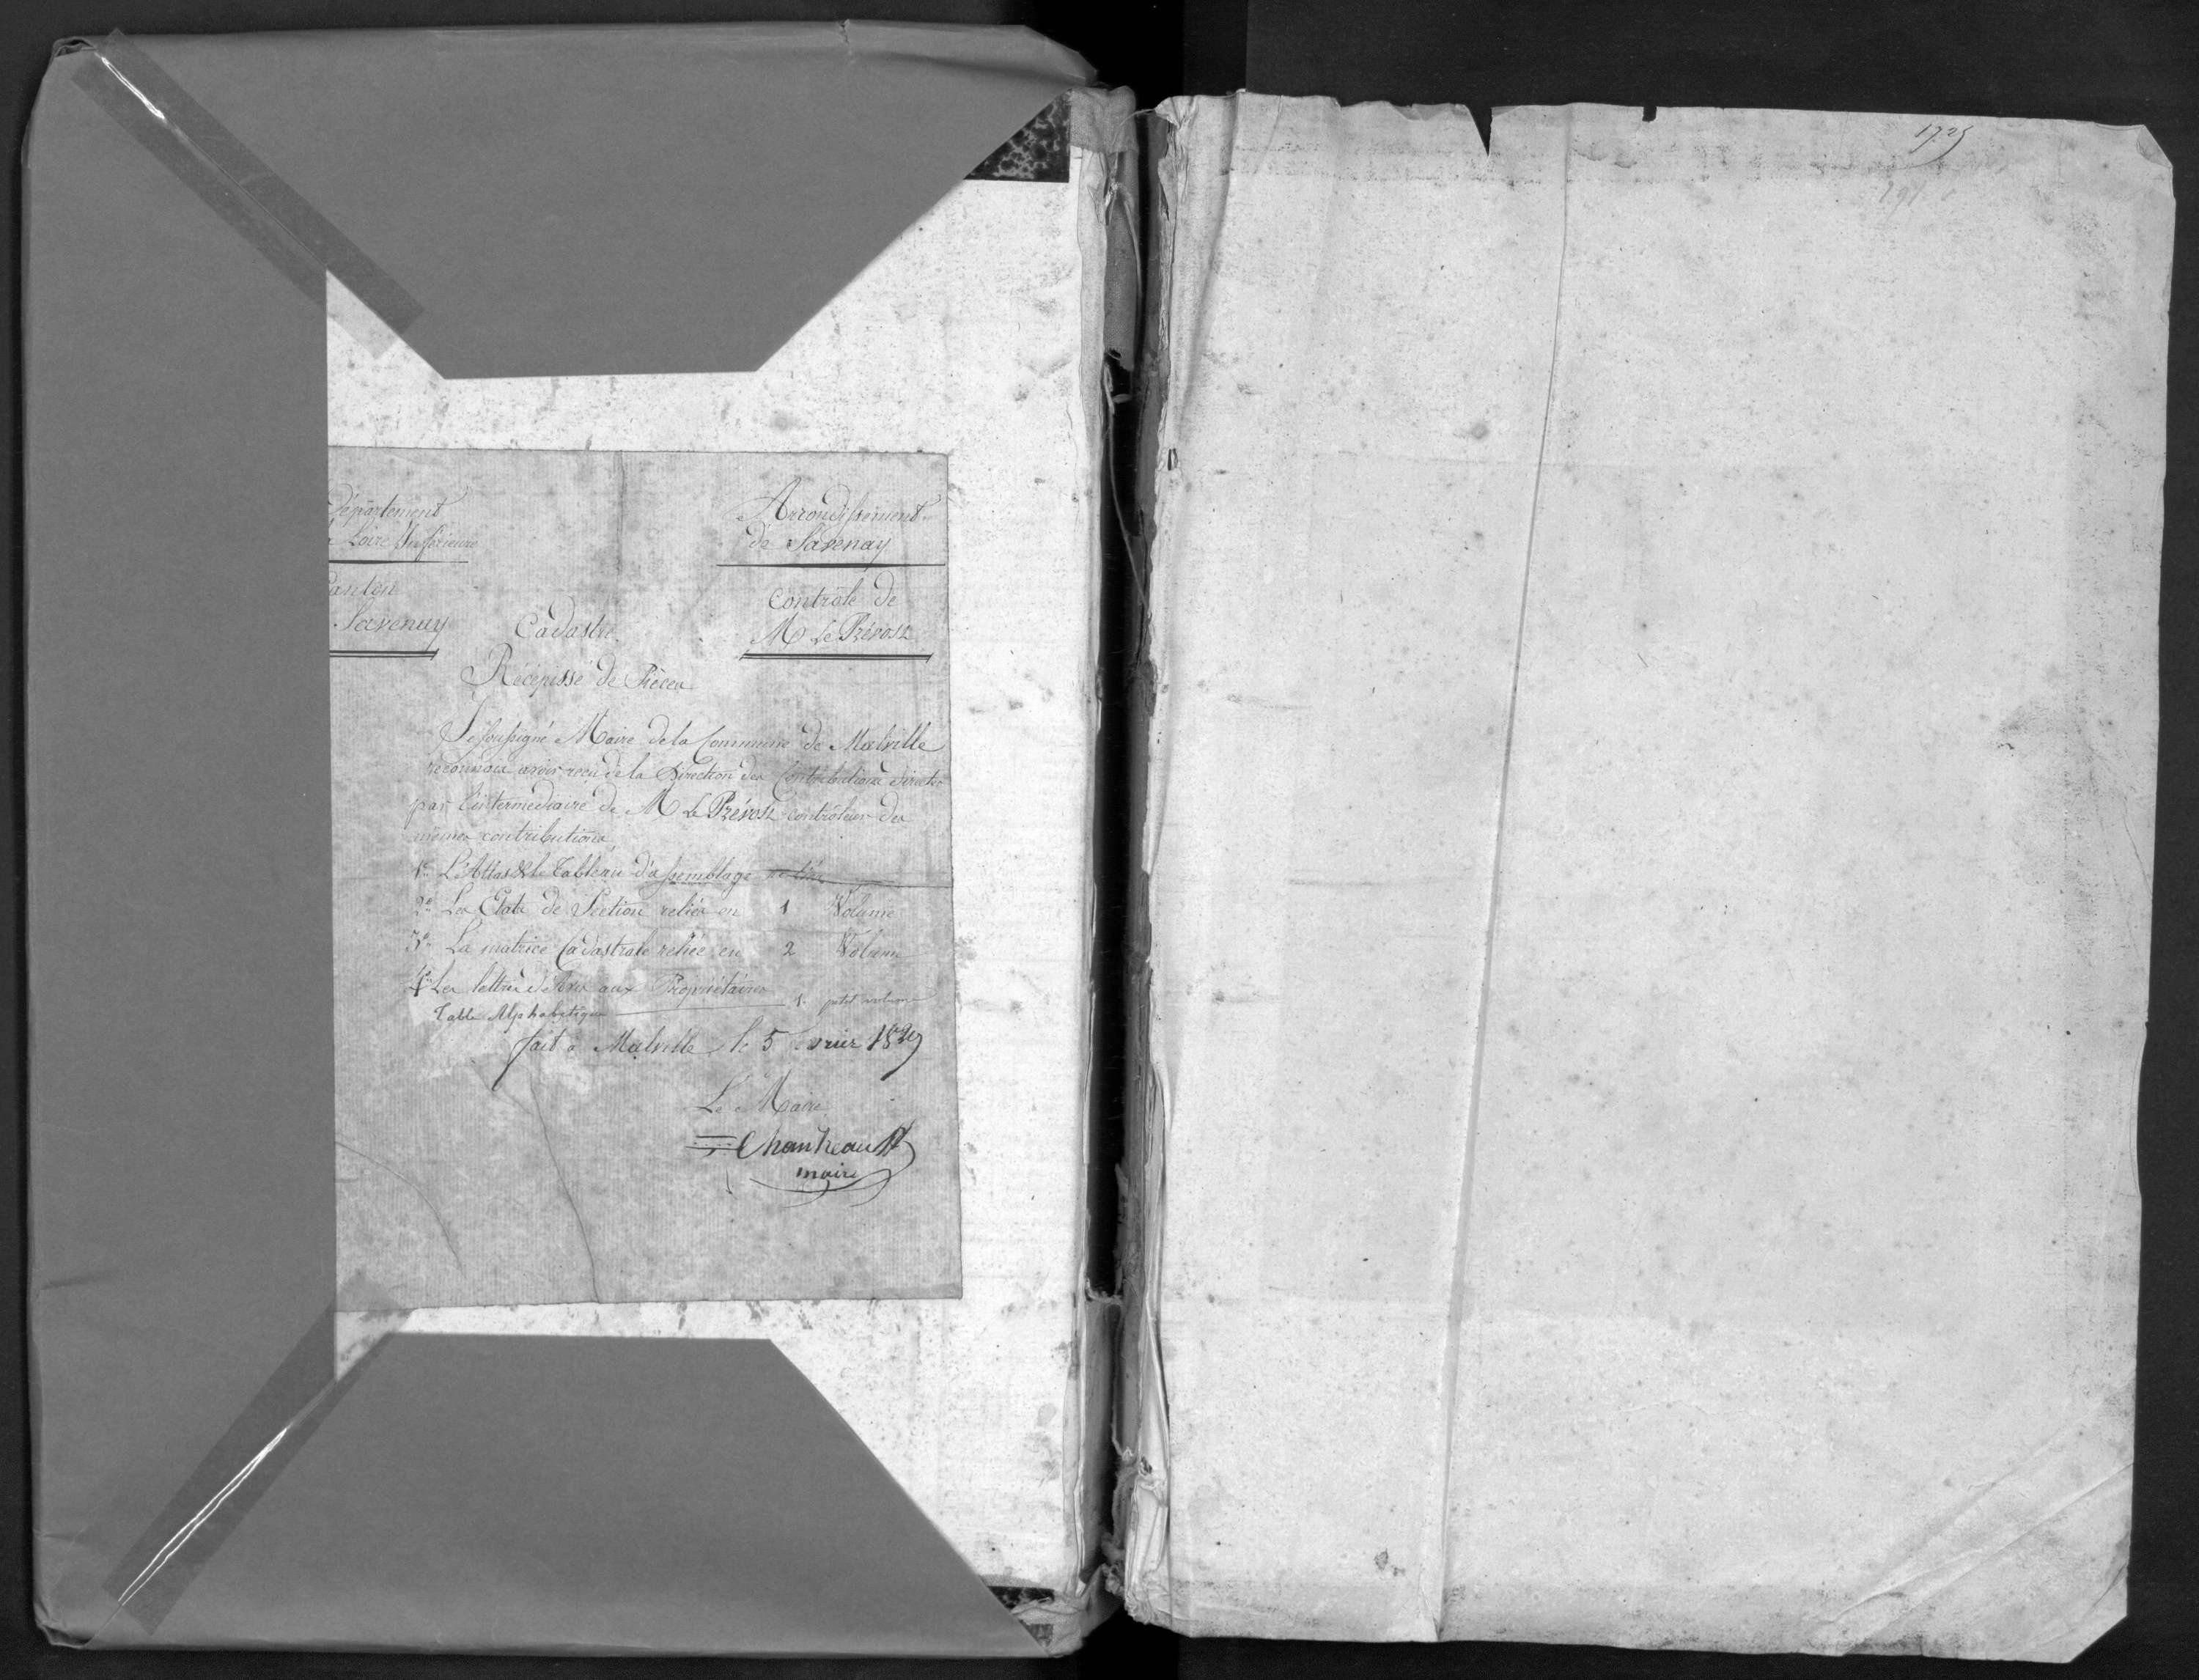 Département
Loire Inférieure
Canton
Savenay
Arrondissement
de Savenay
Contrôle de
M Le Prévost
Cadastre
Récépissé de Pièces
Je soussigné Maire de la Commune de Malville
reconnais avoir reçu de la Direction des Contributions directes
par l'intermédiaire de M Le Prévost contrôleur des
mêmes contributions
1º L'Atlas & le Tableau d'assemblage
2º Les Etats de Section reliés en 1 Volume
3º La matrice Cadastrale reliée en 2 Volume
4º Les lettres d'avis aux Propriétaires
Table Alphabétique 1. petit volume
fait à Malville le 5 vrier
Le Maire
maire